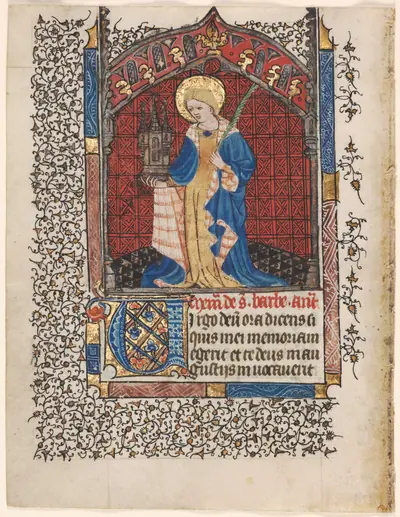 de s. barbe. ant
Virgo deū ora dicens si
quis mei memoriam
egerit et te deus in an
gustijs inuocauerit